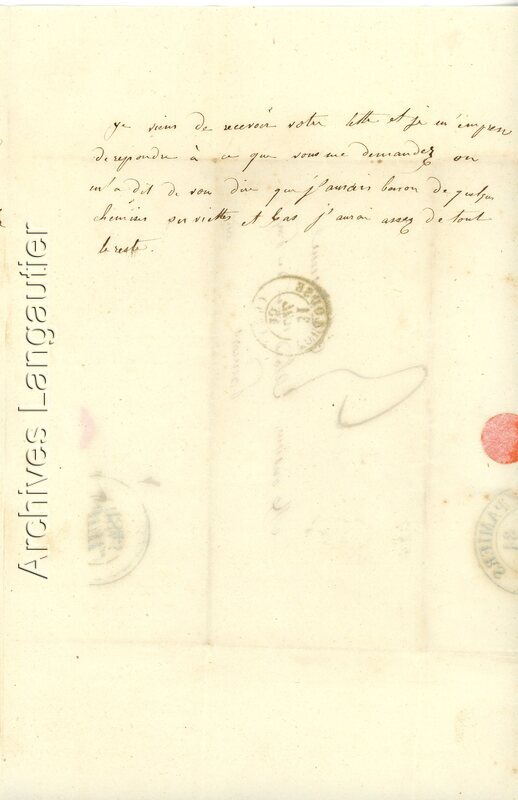 je viens de recevoir votre lette et je m'empres
de repondre à ce que vous me demandez on
m'a dit de vou dire que j'aurais besoin de quelques
chemises serviettes et bas j'aurai assez de tout
le reste.
Archives Langautier
TOULOUSE
31
PAMIERS
31